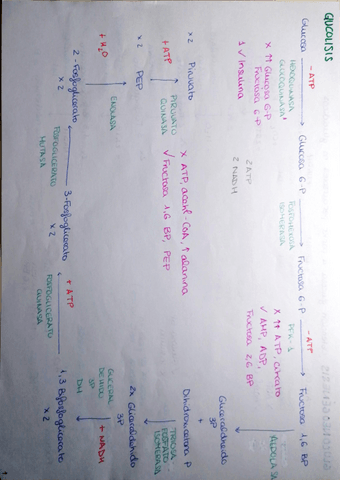 GLICOLISIS
Glucosa
- ATP
HEXOQUINASA
GLUCOQUINASA
X ↑↑ Glucosa 6-P
Fructosa 6-P
1 √ Insulina
Glucosa 6-P
FOSFOHEXOSA
ISOMERASA
Fructosa 6-P
- ATP
PFK-1
X ↑↑ ATP, citrato
√ AMP, ADP,
Fructosa 2,6 BP
Fructosa 1,6 BP
ALDOLASA
Gliceraldehido
3P
+
Dihidroxiacetona P
TRIOSA
FOSFATO
ISOMERASA
2x Gliceraldehido
3P
GLICERAL
DEHIDO
3P
DH
+ NADH
1,3 Bifosfoglicerato
x2
+ ATP
FOSFOGLICERATO
QUINASA
3-Fosfoglicerato
x2
FOSFOGLICERATO
MUTASA
2-Fosfoglicerato
x2
+ H2O
ENOLASA
PEP
x2
+ATP
PIRUVATO
QUINASA
X ATP, acetil-CoA, ↑ alanina
√ Fructosa 1,6 BP, PEP
Piruvato
x2
2 ATP
2 NADH